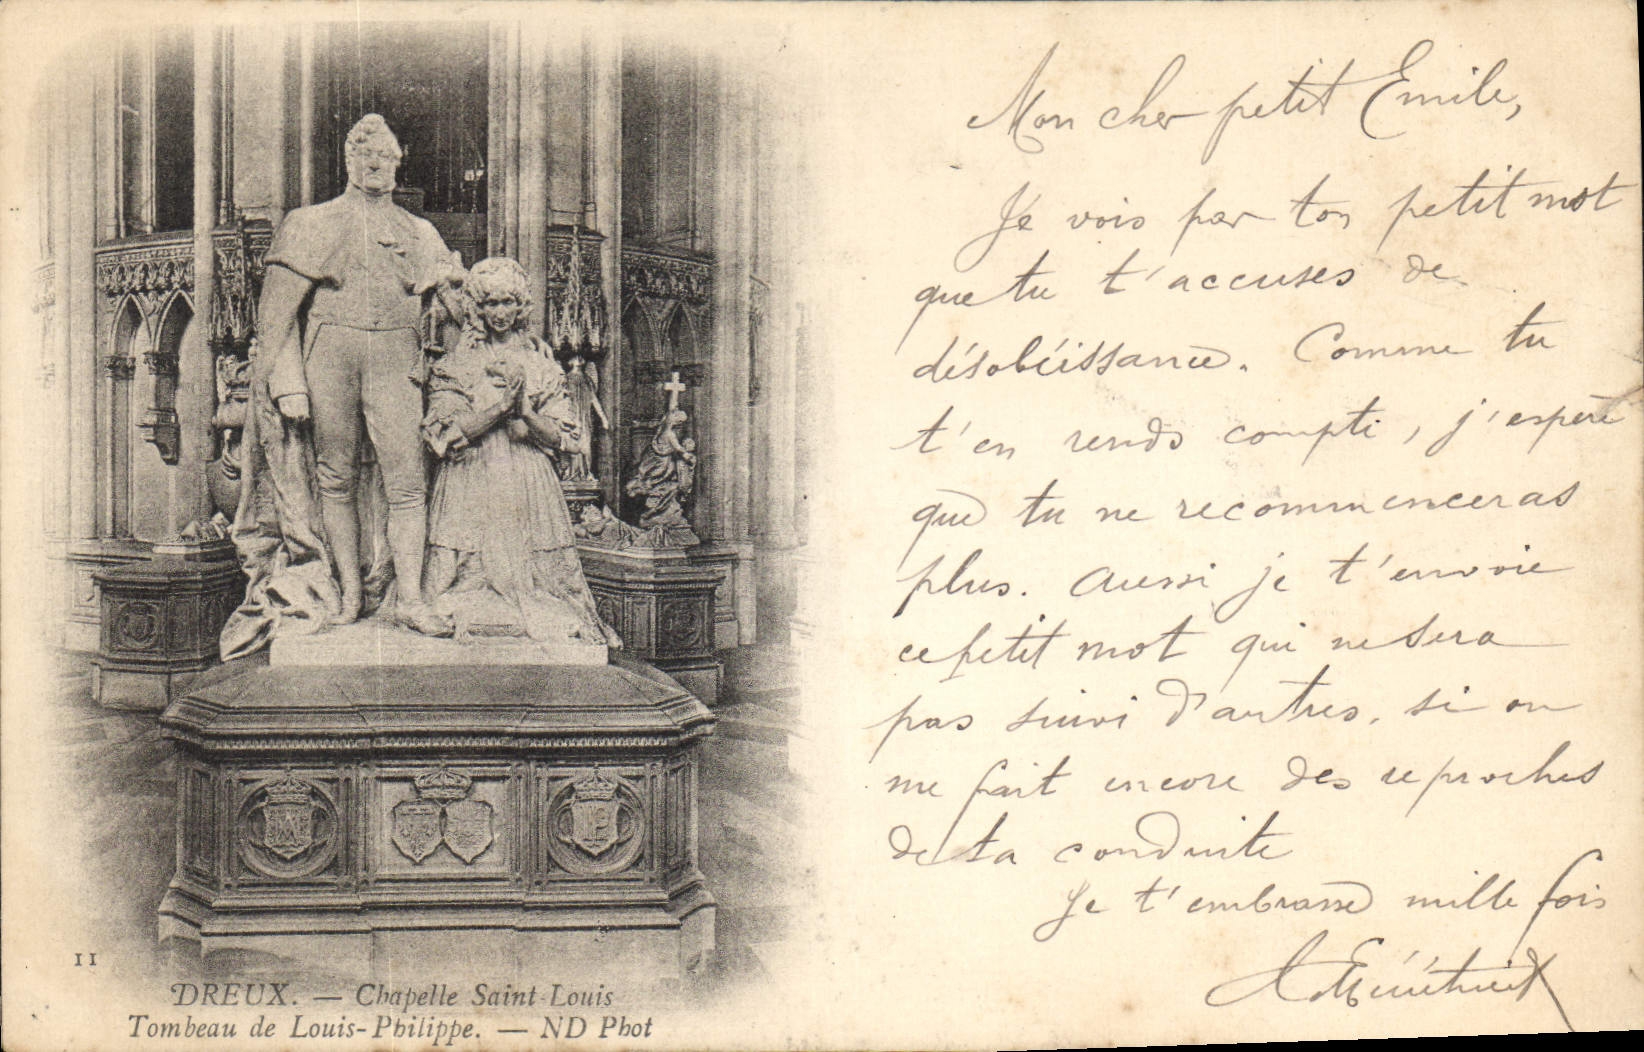 Mon cher petit Emile,
Je vois par ton petit mot
que tu t'accuses de
désobéissance. Comme tu
t'en rends compte, j'espère
que tu ne recommenceras
plus. Aussi je t'envoie
ce petit mot qui ne sera
pas suivi d'autres, si on
me fait encore des reproches
de ta conduite
Je t'embrasse mille fois
11
DREUX. — Chapelle Saint-Louis
Tombeau de Louis-Philippe. — ND Phot